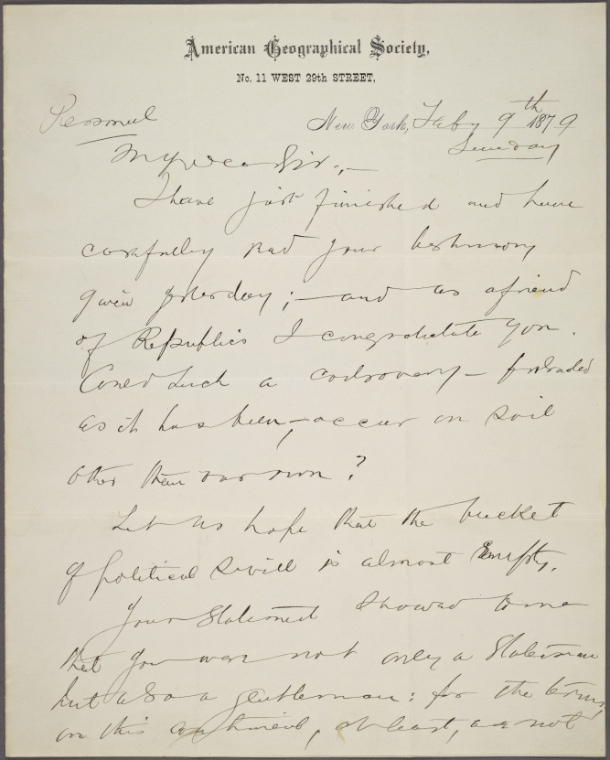 American Geographical Society,
No. 11 WEST 29th STREET,
Personal
New York, Feby 9th 1879
Sunday
My dear Sir,—
I have just finished and have
carefully read your testimony
given yesterday;— and as a friend
of Republics I congratulate you.
Could such a controversy —
as it has been,— occur on soil
other than our own?
Let us hope that the bucket
of political swill is almost Empty.
Your Statement showed to me
that you were not only a Statesman
but also a gentleman: for the terms,
on this continent, at least, are not